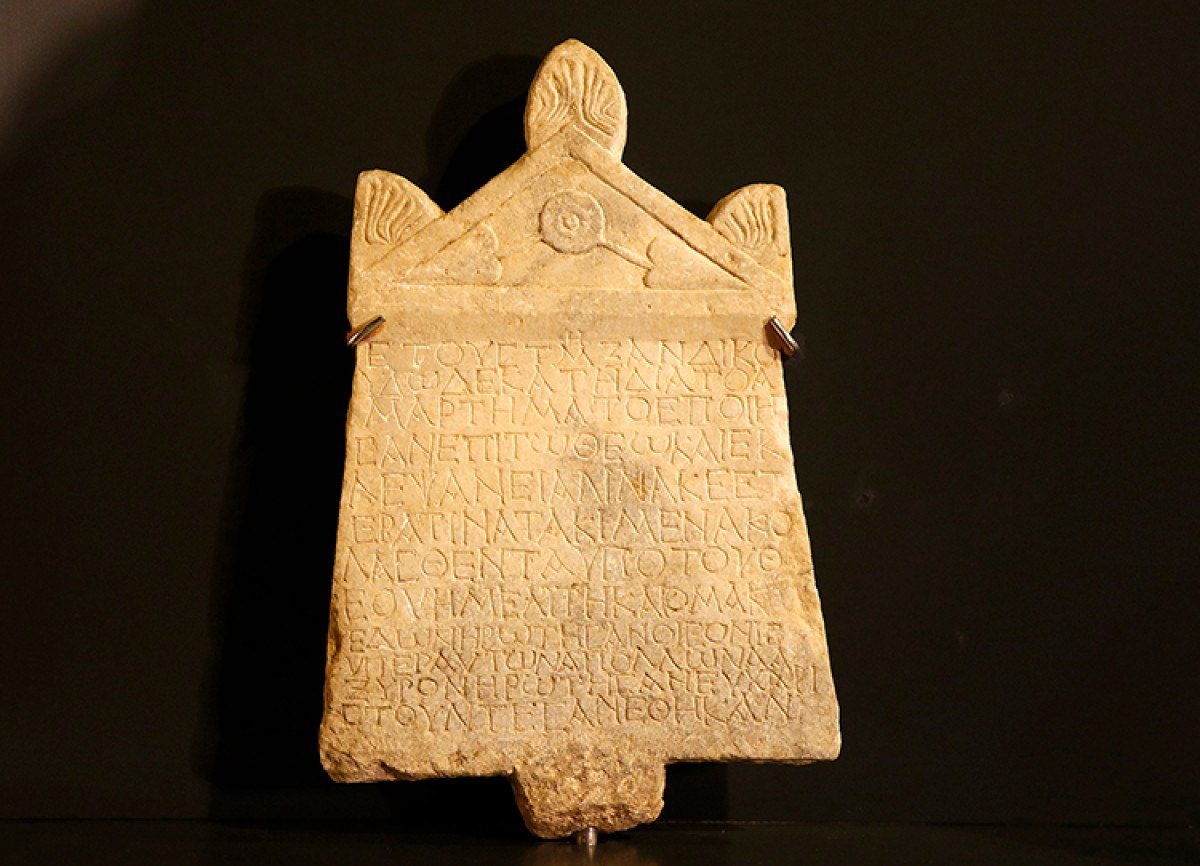 ΕΤΟΥΣΤΜΗΞΑΝΔΙΚΟ
ΥΔΩΔΕΚΑΤΗΔΙΑΤΟΑ
ΜΑΡΤΗΜΑΤΟΕΠΟΙΗ
ΣΑΝΕΠΙΤΩΘΕΩΚΑΙΕΚ
ΛΕΨΑΝΕΙΑΛΙΝΑΚΕΕΤ
ΕΡΑΤΙΝΑΤΑΚΙΜΕΝΑΚΟ
ΛΑΣΘΕΝΤΑΥΠΟΤΟΥΘ
ΕΟΥΗΜΕΛΙΤΗΚΑΙΟΜΑΚ
ΕΔΩΝΗΡΩΤΗΣΑΝΟΙΓΟΝΙΣ
ΥΠΕΡΑΥΤΩΝΑΠΟΛΛΩΝΑΑ
ΞΥΡΟΝΗΡΩΤΗΣΑΝΕΥΧΑΡΙ
ΣΤΟΥΝΤΕΣΑΝΕΘΗΚΑΝ